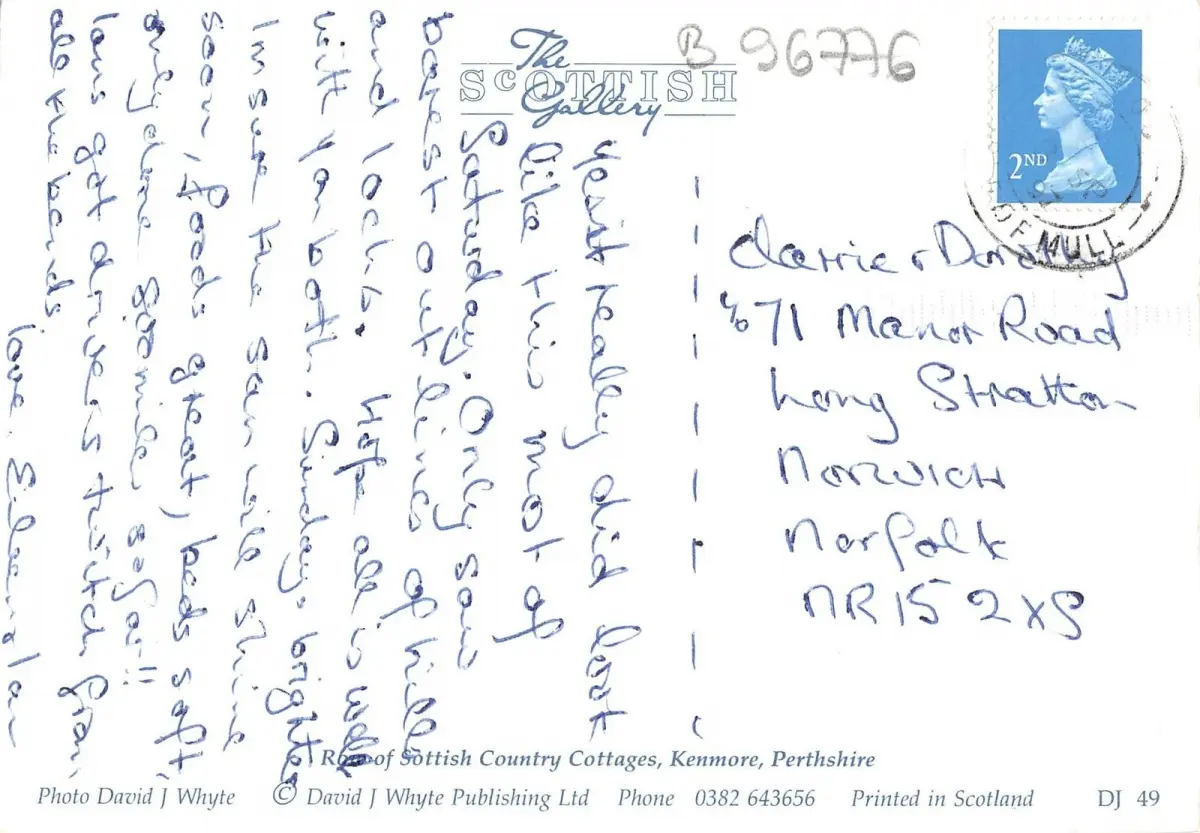 The
SCOTTISH
Gallery
B 96776
2ND
OF MULL
Carrie + Dorothy
c/o 71 Manor Road
Long Stratton
Norwich
Norfolk
NR15 2XS
Yes it really did look
like this most of
Saturday. Only saw
barest outlines of hills
and lochs. Hope all is well
with you both. Sunday. brighter
Im sure the sun will shine
soon, foods great, beds soft,
only done 500 miles so far!!
Ians got drivers twitch from
all the bends.
love. Eileen + Ian
Row of Sottish Country Cottages, Kenmore, Perthshire
Photo David J Whyte © David J Whyte Publishing Ltd Phone 0382 643656 Printed in Scotland DJ 49